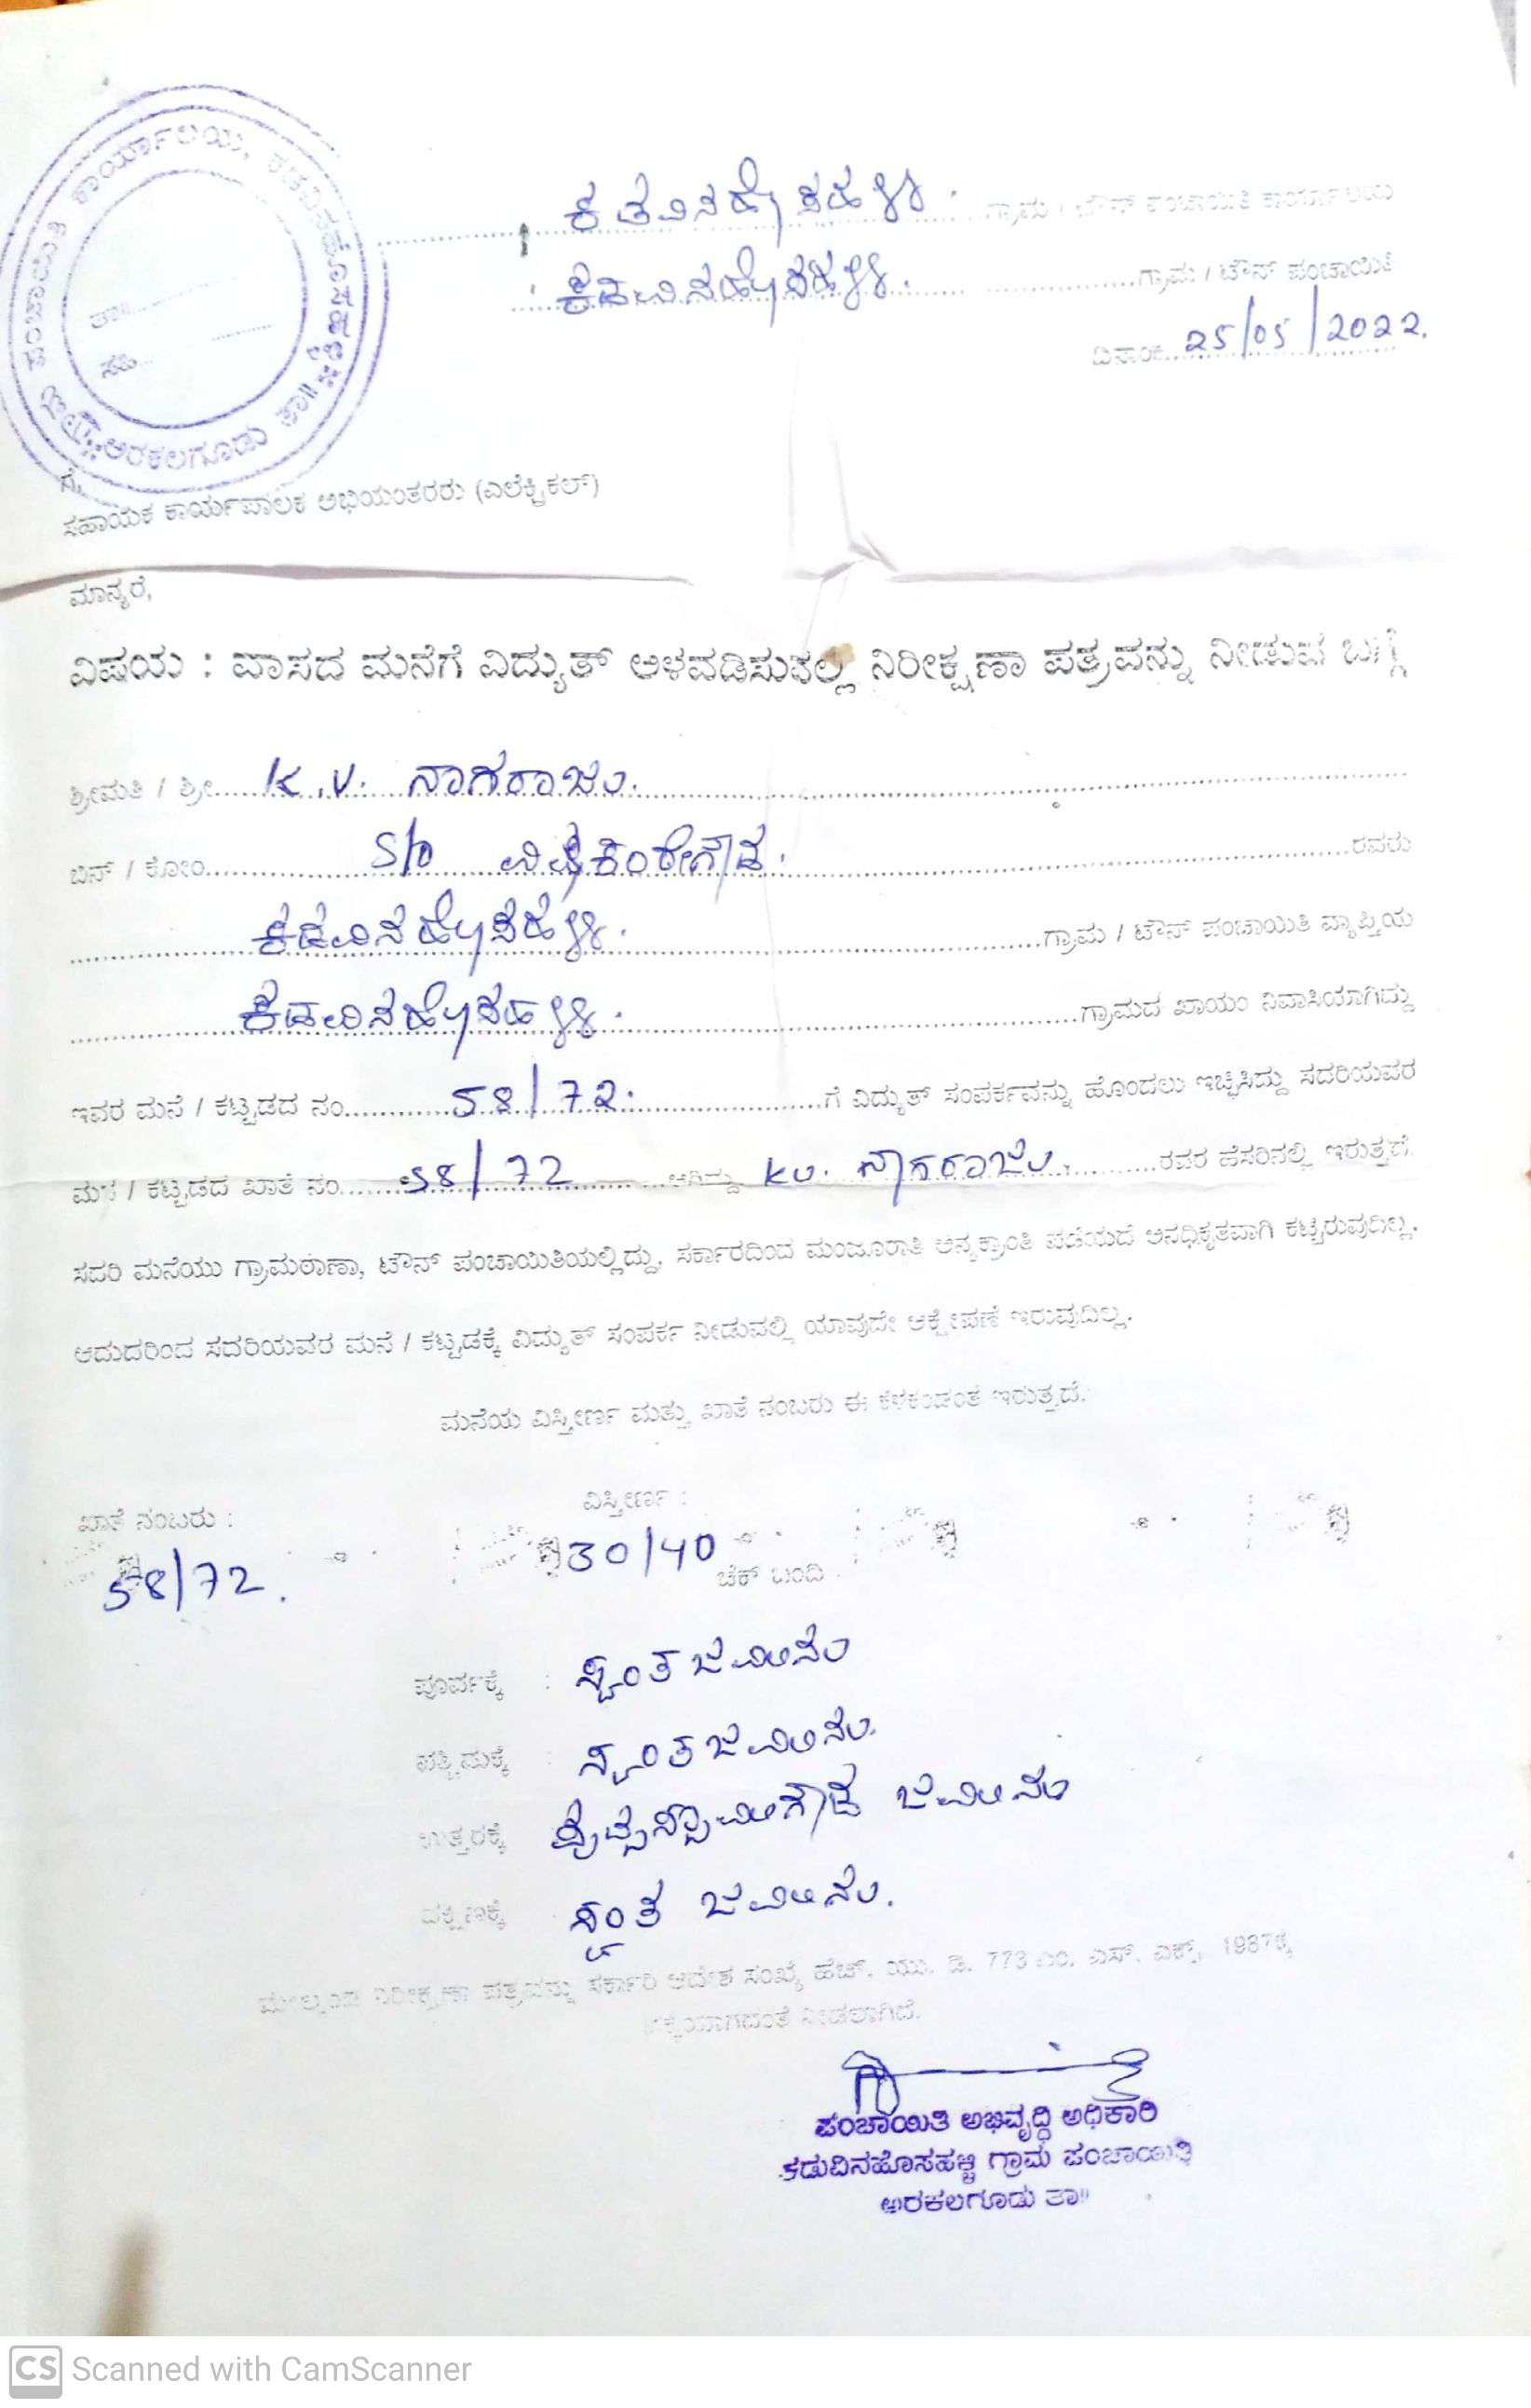 ಗ್ರಾಮ ಪಂಚಾಯಿತಿ ಕಾರ್ಯಾಲಯ, ಕಡುವಿನಹೊಸಹಳ್ಳಿ ಅರಕಲಗೂಡು ತಾ॥
ತಾ:
ಸಹಿ
ಕಡವಿನಹೊಸಹಳ್ಳಿ. ಗ್ರಾಮ / ಟೌನ್ ಪಂಚಾಯಿತಿ ಕಾರ್ಯಾಲಯ
ಕಡವಿನಹೊಸಹಳ್ಳಿ. ಗ್ರಾಮ / ಟೌನ್ ಪಂಚಾಯಿತಿ
ದಿನಾಂಕ 25/05/2022.
ಗೆ,
ಸಹಾಯಕ ಕಾರ್ಯಪಾಲಕ ಅಭಿಯಂತರರು (ಎಲೆಕ್ಟ್ರಿಕಲ್)
ಮಾನ್ಯರೆ,
ವಿಷಯ : ವಾಸದ ಮನೆಗೆ ವಿದ್ಯುತ್ ಅಳವಡಿಸುವಲ್ಲಿ ನಿರೀಕ್ಷಣಾ ಪತ್ರವನ್ನು ನೀಡುವ ಬಗ್ಗೆ
ಶ್ರೀಮತಿ / ಶ್ರೀ K.V. ನಾಗರಾಜು.
ಬಿನ್ / ಕೋಂ S/o ರವರು
ಕಡವಿನಹೊಸಹಳ್ಳಿ. ಗ್ರಾಮ / ಟೌನ್ ಪಂಚಾಯಿತಿ ವ್ಯಾಪ್ತಿಯ
ಕಡವಿನಹೊಸಹಳ್ಳಿ. ಗ್ರಾಮದ ಖಾಯಂ ನಿವಾಸಿಯಾಗಿದ್ದು
ಇವರ ಮನೆ / ಕಟ್ಟಡದ ನಂ 58/72. ಗೆ ವಿದ್ಯುತ್ ಸಂಪರ್ಕವನ್ನು ಹೊಂದಲು ಇಚ್ಛಿಸಿದ್ದು ಸದರಿಯವರ
ಮನೆ / ಕಟ್ಟಡದ ಖಾತೆ ನಂ 58/72 ಆಗಿದ್ದು KV. ನಾಗರಾಜು. ರವರ ಹೆಸರಿನಲ್ಲಿ ಇರುತ್ತದೆ.
ಸದರಿ ಮನೆಯು ಗ್ರಾಮಠಾಣಾ, ಟೌನ್ ಪಂಚಾಯಿತಿಯಲ್ಲಿದ್ದು, ಸರ್ಕಾರದಿಂದ ಮಂಜೂರಾತಿ ಅನ್ಯಕ್ರಾಂತಿ ಪಡೆಯದೆ ಅನಧಿಕೃತವಾಗಿ ಕಟ್ಟಿರುವುದಿಲ್ಲ.
ಆದುದರಿಂದ ಸದರಿಯವರ ಮನೆ / ಕಟ್ಟಡಕ್ಕೆ ವಿದ್ಯುತ್ ಸಂಪರ್ಕ ನೀಡುವಲ್ಲಿ ಯಾವುದೇ ಆಕ್ಷೇಪಣೆ ಇರುವುದಿಲ್ಲ.
ಮನೆಯ ವಿಸ್ತೀರ್ಣ ಮತ್ತು ಖಾತೆ ನಂಬರು ಈ ಕೆಳಕಂಡಂತೆ ಇರುತ್ತದೆ.
ಖಾತೆ ನಂಬರು : ವಿಸ್ತೀರ್ಣ :
58/72. 30/40
ಚೆಕ್ ಬಂದಿ
ಪೂರ್ವಕ್ಕೆ : ಸ್ವಂತ ಜಮೀನು
ಪಶ್ಚಿಮಕ್ಕೆ : ಸ್ವಂತ ಜಮೀನು.
ಉತ್ತರಕ್ಕೆ ಜಮೀನು
ದಕ್ಷಿಣಕ್ಕೆ ಸ್ವಂತ ಜಮೀನು.
ಮೇಲ್ಕಂಡ ನಿರೀಕ್ಷಣಾ ಪತ್ರವನ್ನು ಸರ್ಕಾರಿ ಆದೇಶ ಸಂಖ್ಯೆ ಹೆಚ್. ಯು. ಡಿ. 773 ಎಂ. ಎಸ್. ಎಕ್ಸ್. 1987ಕ್ಕೆ
ನೀಡಲಾಗಿದೆ.
ಪಂಚಾಯಿತಿ ಅಭಿವೃದ್ಧಿ ಅಧಿಕಾರಿ
ಕಡುವಿನಹೊಸಹಳ್ಳಿ ಗ್ರಾಮ ಪಂಚಾಯಿತಿ
ಅರಕಲಗೂಡು ತಾ॥
CS Scanned with CamScanner